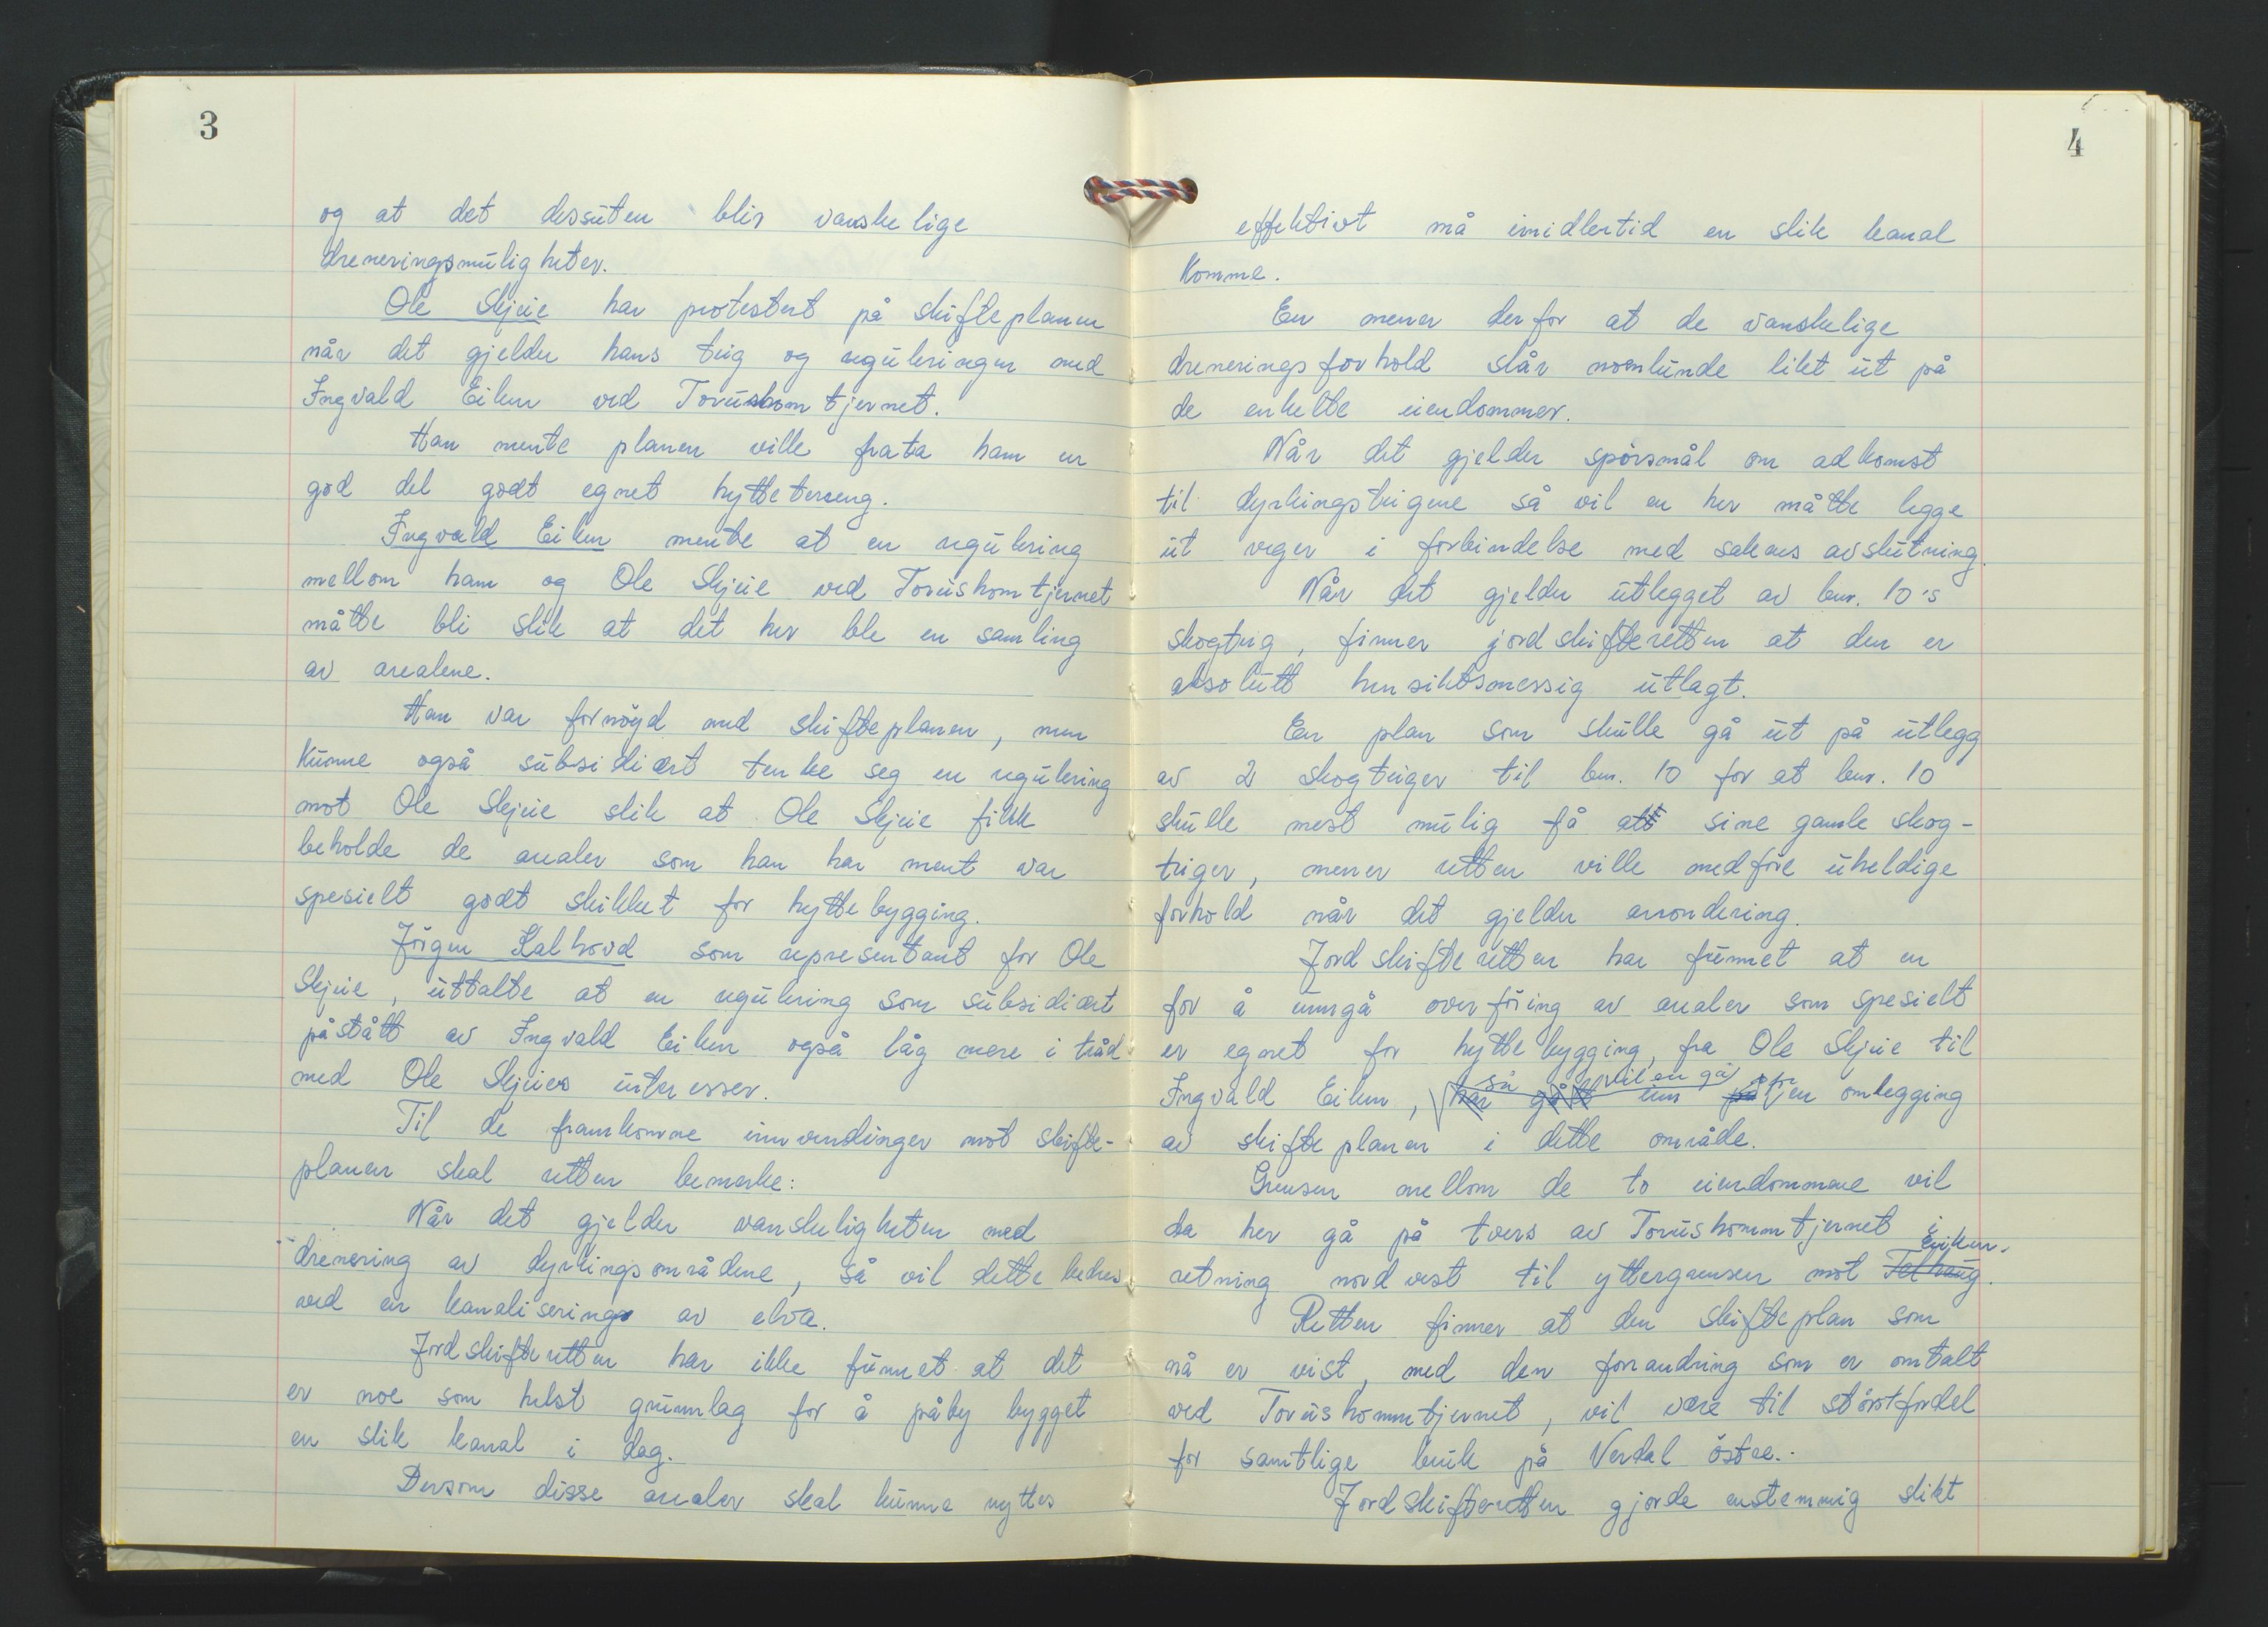 3
og at det dessuten blir vanskelige
dreneringsmuligheter.
Ole Skjeie har protestert på skifteplanen
når det gjelder hans teig og reguleringen med
Ingvald Eiken ved Torushomtjernet.
Han mente planen ville frata ham en
god del godt egnet hytteterreng.
Ingvald Eiken mente at en regulering
mellom ham og Ole Skjeie ved Torushomtjernet
måtte bli slik at det her ble en samling
av arealene.
Han var fornøyd med skifteplanen, men
kunne også subsidiært tenke seg en regulering
mot Ole Skjeie slik at Ole Skjeie fikk
beholde de arealer som han har ment var
spesielt godt skikket for hyttebygging.
Jørgen Kalhovd som representant for Ole
Skjeie, uttalte at en regulering som subsidiært
påstått av Ingvald Eiken også låg mere i tråd
med Ole Skjeies interesser.
Til de framkomne innvendinger mot skifte-
planen skal retten bemerke:
Når det gjelder vanskeligheten med
drenering av dyrkingsområdene, så vil dette bedres
ved en kanalisering av elva.
Jordskifteretten har ikke funnet at det
er noe som helst grunnlag for å påby bygget
en slik kanal i dag.
Dersom disse arealer skal kunne nyttes
4
effektivt må imidlertid en slik kanal
komme.
En mener derfor at de vanskelige
dreneringsforhold slår noenlunde likt ut på
de enkelte eiendommer.
Når det gjelder spørsmål om adkomst
til dyrkingsteigene så vil en her måtte legge
ut veger i forbindelse med sakens avslutning.
Når det gjelder utlegget av bnr. 10's
skogteig, finner jordskifteretten at den er
absolutt hensiktsmessig utlagt.
En plan som skulle gå ut på utlegg
av 2 skogteiger til bnr. 10 for at bnr. 10
skulle mest mulig få att sine gamle skog-
teiger, mener retten ville medføre uheldige
forhold når det gjelder arrondering.
Jordskifteretten har funnet at en
for å unngå overføring av arealer som spesielt
er egnet for hyttebygging, fra Ole Skjeie til
så vil en gå for
Ingvald Eiken, har gått inn på en omlegging
av skifteplanen i dette område.
Grensen mellom de to eiendommene vil
da her gå på tvers av Torushommtjernet i
Eiken.
retning nordvest til yttergrensen mot Felhaug.
Retten finner at den skifteplan som
nå er vist, med den forandring som er omtalt
ved Torushommtjernet, vil være til størst fordel
for samtlige bruk på Verdal østre.
Jordskifteretten gjorde enstemmig slikt